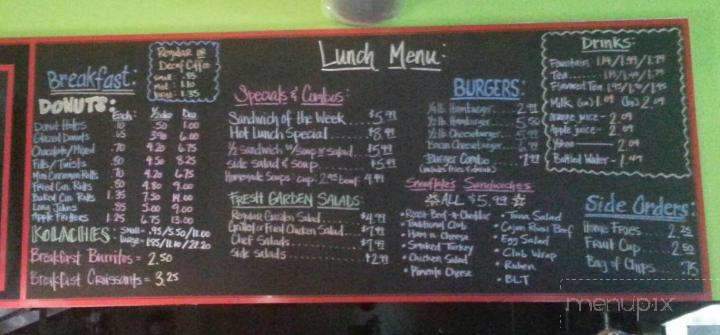 Lunch Menu:
Breakfast:
Regular or
Decaf Coffee
small .85
med 1.10
large 1.35
DONUTS:
Each: 1/2 doz Doz
Donut Holes 1.00
Glazed Donuts 6.00
Chocolate/Iced .70 4.20 6.75
Fills/Twists .80 4.50 8.25
Mini Cinnamon Rolls .70 4.20 6.75
Fried Cin. Rolls .80 4.80 9.00
Baked Cin. Rolls 1.35 7.50 14.00
Long Johns .85 5.00 9.00
Apple Fritters 1.25 6.75 13.00
KOLACHES: Small - .95/5.50/11.00
Large -
Breakfast Burritos = 2.50
Breakfast Croissants = 3.25
Specials & Combos:
Sandwich of the Week $5.99
Hot Lunch Special $8.99
1/2 sandwich w/soup or salad $5.99
side salad & soup $5.99
Homemade Soups: cup 2.95 bowl 4.99
FRESH GARDEN SALADS:
Regular Garden Salad $4.99
Grilled or Fried Chicken Salad $7.99
Chef Salads $7.99
Side Salads $2.99
BURGERS:
1/4 lb. Hamburger 2.99
1/2 lb. Hamburger 5.50
1/2 lb. Cheeseburger 5.99
Bacon Cheeseburger 6.99
Burger Combo
(includes fries & drink)
Sandwiches
ALL $5.99
• Roast Beef & Cheddar
• Traditional Club
• Ham & Cheese
• Smoked Turkey
• Chicken Salad
• Pimento Cheese
• Tuna Salad
• Cajun Roast Beef
• Egg Salad
• Club Wrap
• Reuben
• BLT
Drinks:
Fountain 1.49/1.59/1.79
Tea
Flavored Tea 1.75/1.90/1.95
Milk (sm) 1.09 (lg) 2.09
Orange juice 2.09
Apple juice 2.09
2.09
Bottled Water 1.49
Side Orders:
Home Fries 2.25
Fruit Cup 2.50
Bag of Chips .75
menupix